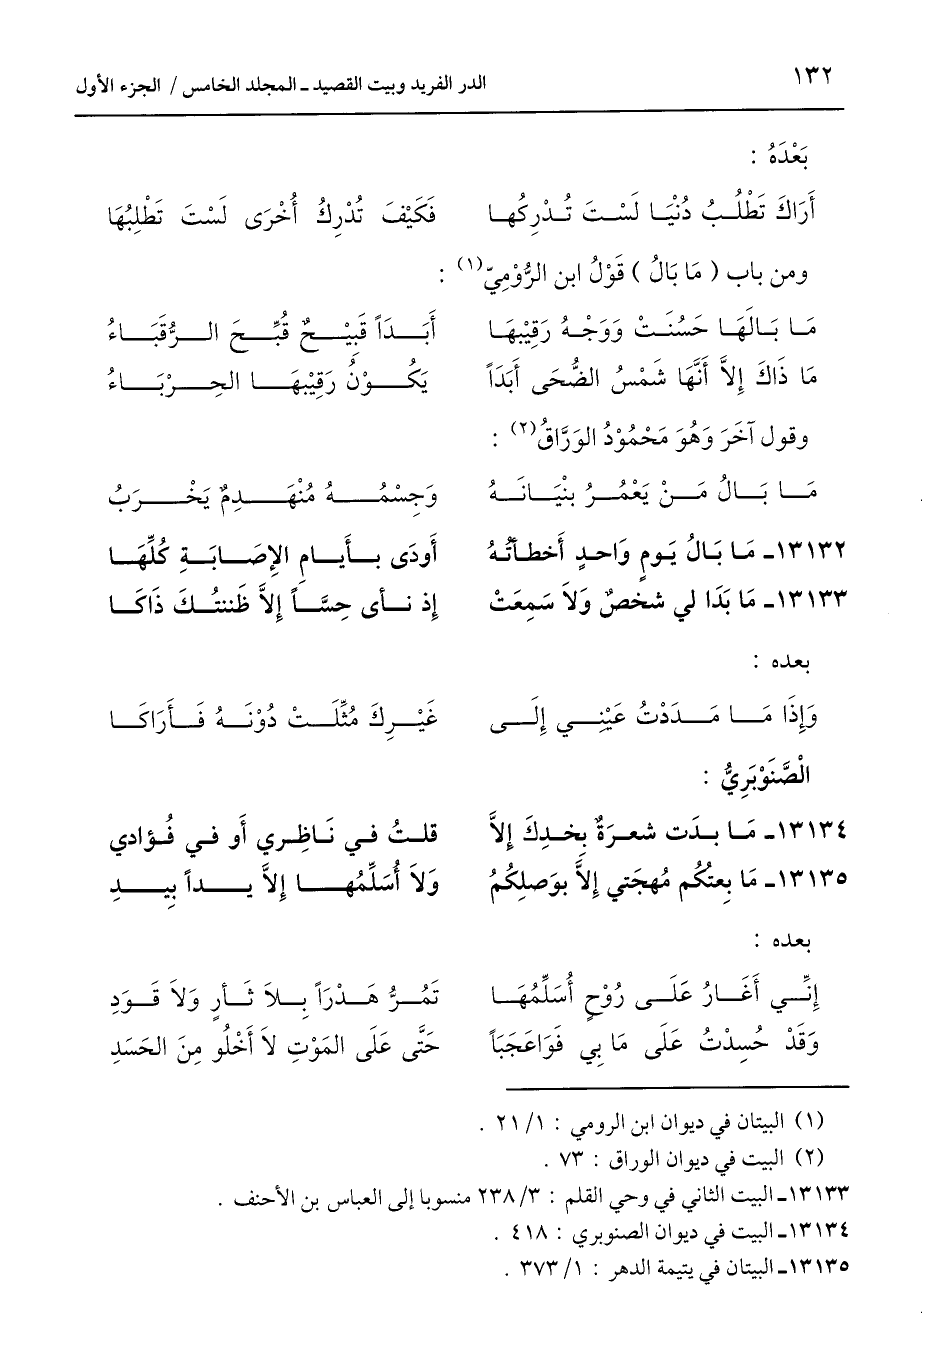 ١٣٢ الدر الفريد وبيت القصيد ـ المجلد الخامس / الجزء الأول
بَعْدَهُ :
أَرَاكَ تَطْلُبُ دُنْيَا لَسْتَ تُدْرِكُهَا فَكَيْفَ تُدْرِكُ أُخْرَى لَسْتَ تَطْلِبُهَا
ومن باب ( مَا بَالُ ) قَوْلُ ابن الرُّوْمِيّ(١) :
مَا بَالَهَا حَسُنَتْ وَوَجْهُ رَقِيْبِهَا أَبَدَاً قَبِيْحٌ قُبِّحَ الرُّقَبَاءُ
مَا ذَاكَ إِلاَّ أَنَّهَا شَمْسُ الضُّحَى أَبَدَاً يَكُوْنُ رَقِيْبَهَا الحِرْبَاءُ
وقول آخَرَ وَهُوَ مَحْمُوْدُ الوَرَّاقُ(٢) :
مَا بَالُ مَنْ يَعْمُرُ بِنْيَانَهُ وَجِسْمُهُ مُنْهَدِمٌ يَخْرَبُ
١٣١٣٢ـ مَا بَالُ يَومٍ وَاحدٍ أَخطَأتُهُ أَودَى بأَيامِ الإِصَابَةِ كُلِّهَا
١٣١٣٣ـ مَا بَدَا لي شخصٌ وَلاَ سَمِعَتْ إِذ نأى حِسَّاً إِلاَّ ظَننتُكَ ذَاكَا
بعده :
وَإِذَا مَا مَدَدْتُ عَيْنِي إِلَى غَيْرِكَ مُثِّلَتْ دُوْنَهُ فَأَرَاكَا
الْصَّنَوْبَرِيُّ :
١٣١٣٤ـ مَا بدَت شعرَةٌ بخدِكَ إِلاَّ قلتُ في نَاظِري أَو في فُؤادي
١٣١٣٥ـ مَا بِعتُكُم مُهجَتي إِلاَّ بوَصلِكُمُ وَلاَ أُسَلِّمُهَا إِلاَّ يداً بِيدِ
بعده :
إِنِّي أَغَارُ عَلَى رُوْحٍ أُسَلِّمُهَا تَمُرُّ هَدْرَاً بِلاَ ثَأرٍ وَلاَ قَوَدِ
وَقَدْ حُسِدْتُ عَلَى مَا بِي فَوَاعَجَبَاً حَتَّى عَلَى المَوْتِ لاَ أَخْلُو مِنَ الحَسَدِ
(١) البيتان في ديوان ابن الرومي : ١/ ٢١ .
(٢) البيت في ديوان الوراق : ٧٣ .
١٣١٣٣ـ البيت الثاني في وحي القلم : ٣/ ٢٣٨ منسوبا إلى العباس بن الأحنف .
١٣١٣٤ـ البيت في ديوان الصنوبري : ٤١٨ .
١٣١٣٥ـ البيتان في يتيمة الدهر : ١/ ٣٧٣ .